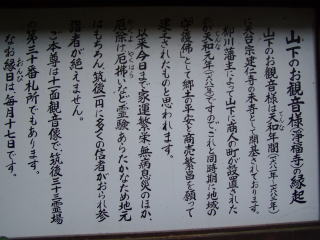 山下のお観音様(淨福寺)の縁起
山下のお観音様は天和年間(一六八一~一六八三年)
に真言宗建仁寺の末寺として開基されております。
柳川藩主によって山下に商人の町が設置された
のが天和元年(一六八一年)ですのでこれと同時期に地域の
守護佛として郷土の平安と商売繁昌を願って
建立されたものと思われます。
以来今日まで家運繁栄、無病息災のほか、
厄除け厄拂いなど霊験あらたかなため地元
やくよ
やくばら
はもちろん、筑後一円に多くの信者がおられ参
詣者が絶えません。
ご本尊は十一面観音像で、筑後三十三霊場
の第三十番札所でもあります。
なお縁日は、毎月十七日です。